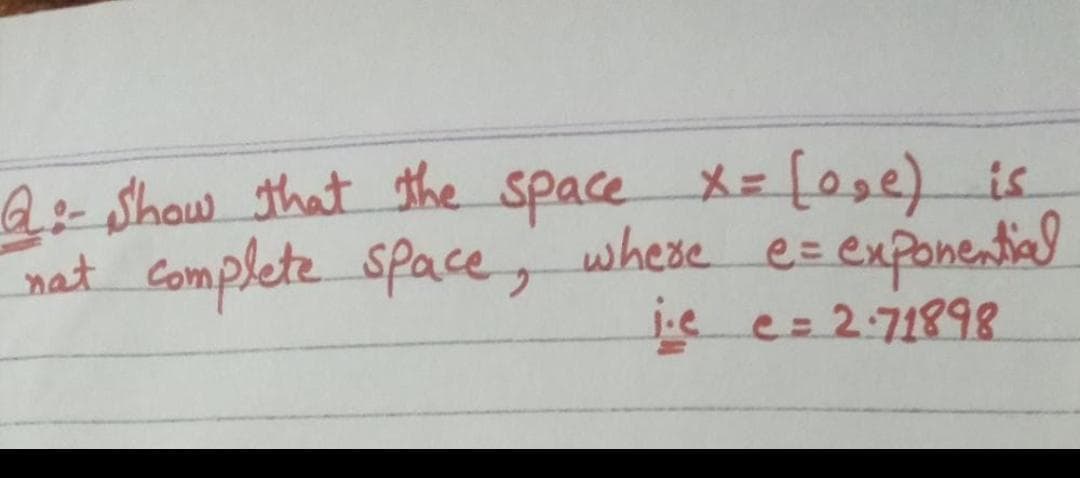 Q:- Show that the space X = [0,e) is
not complete space, where e = exponential
i.e e = 2.71898